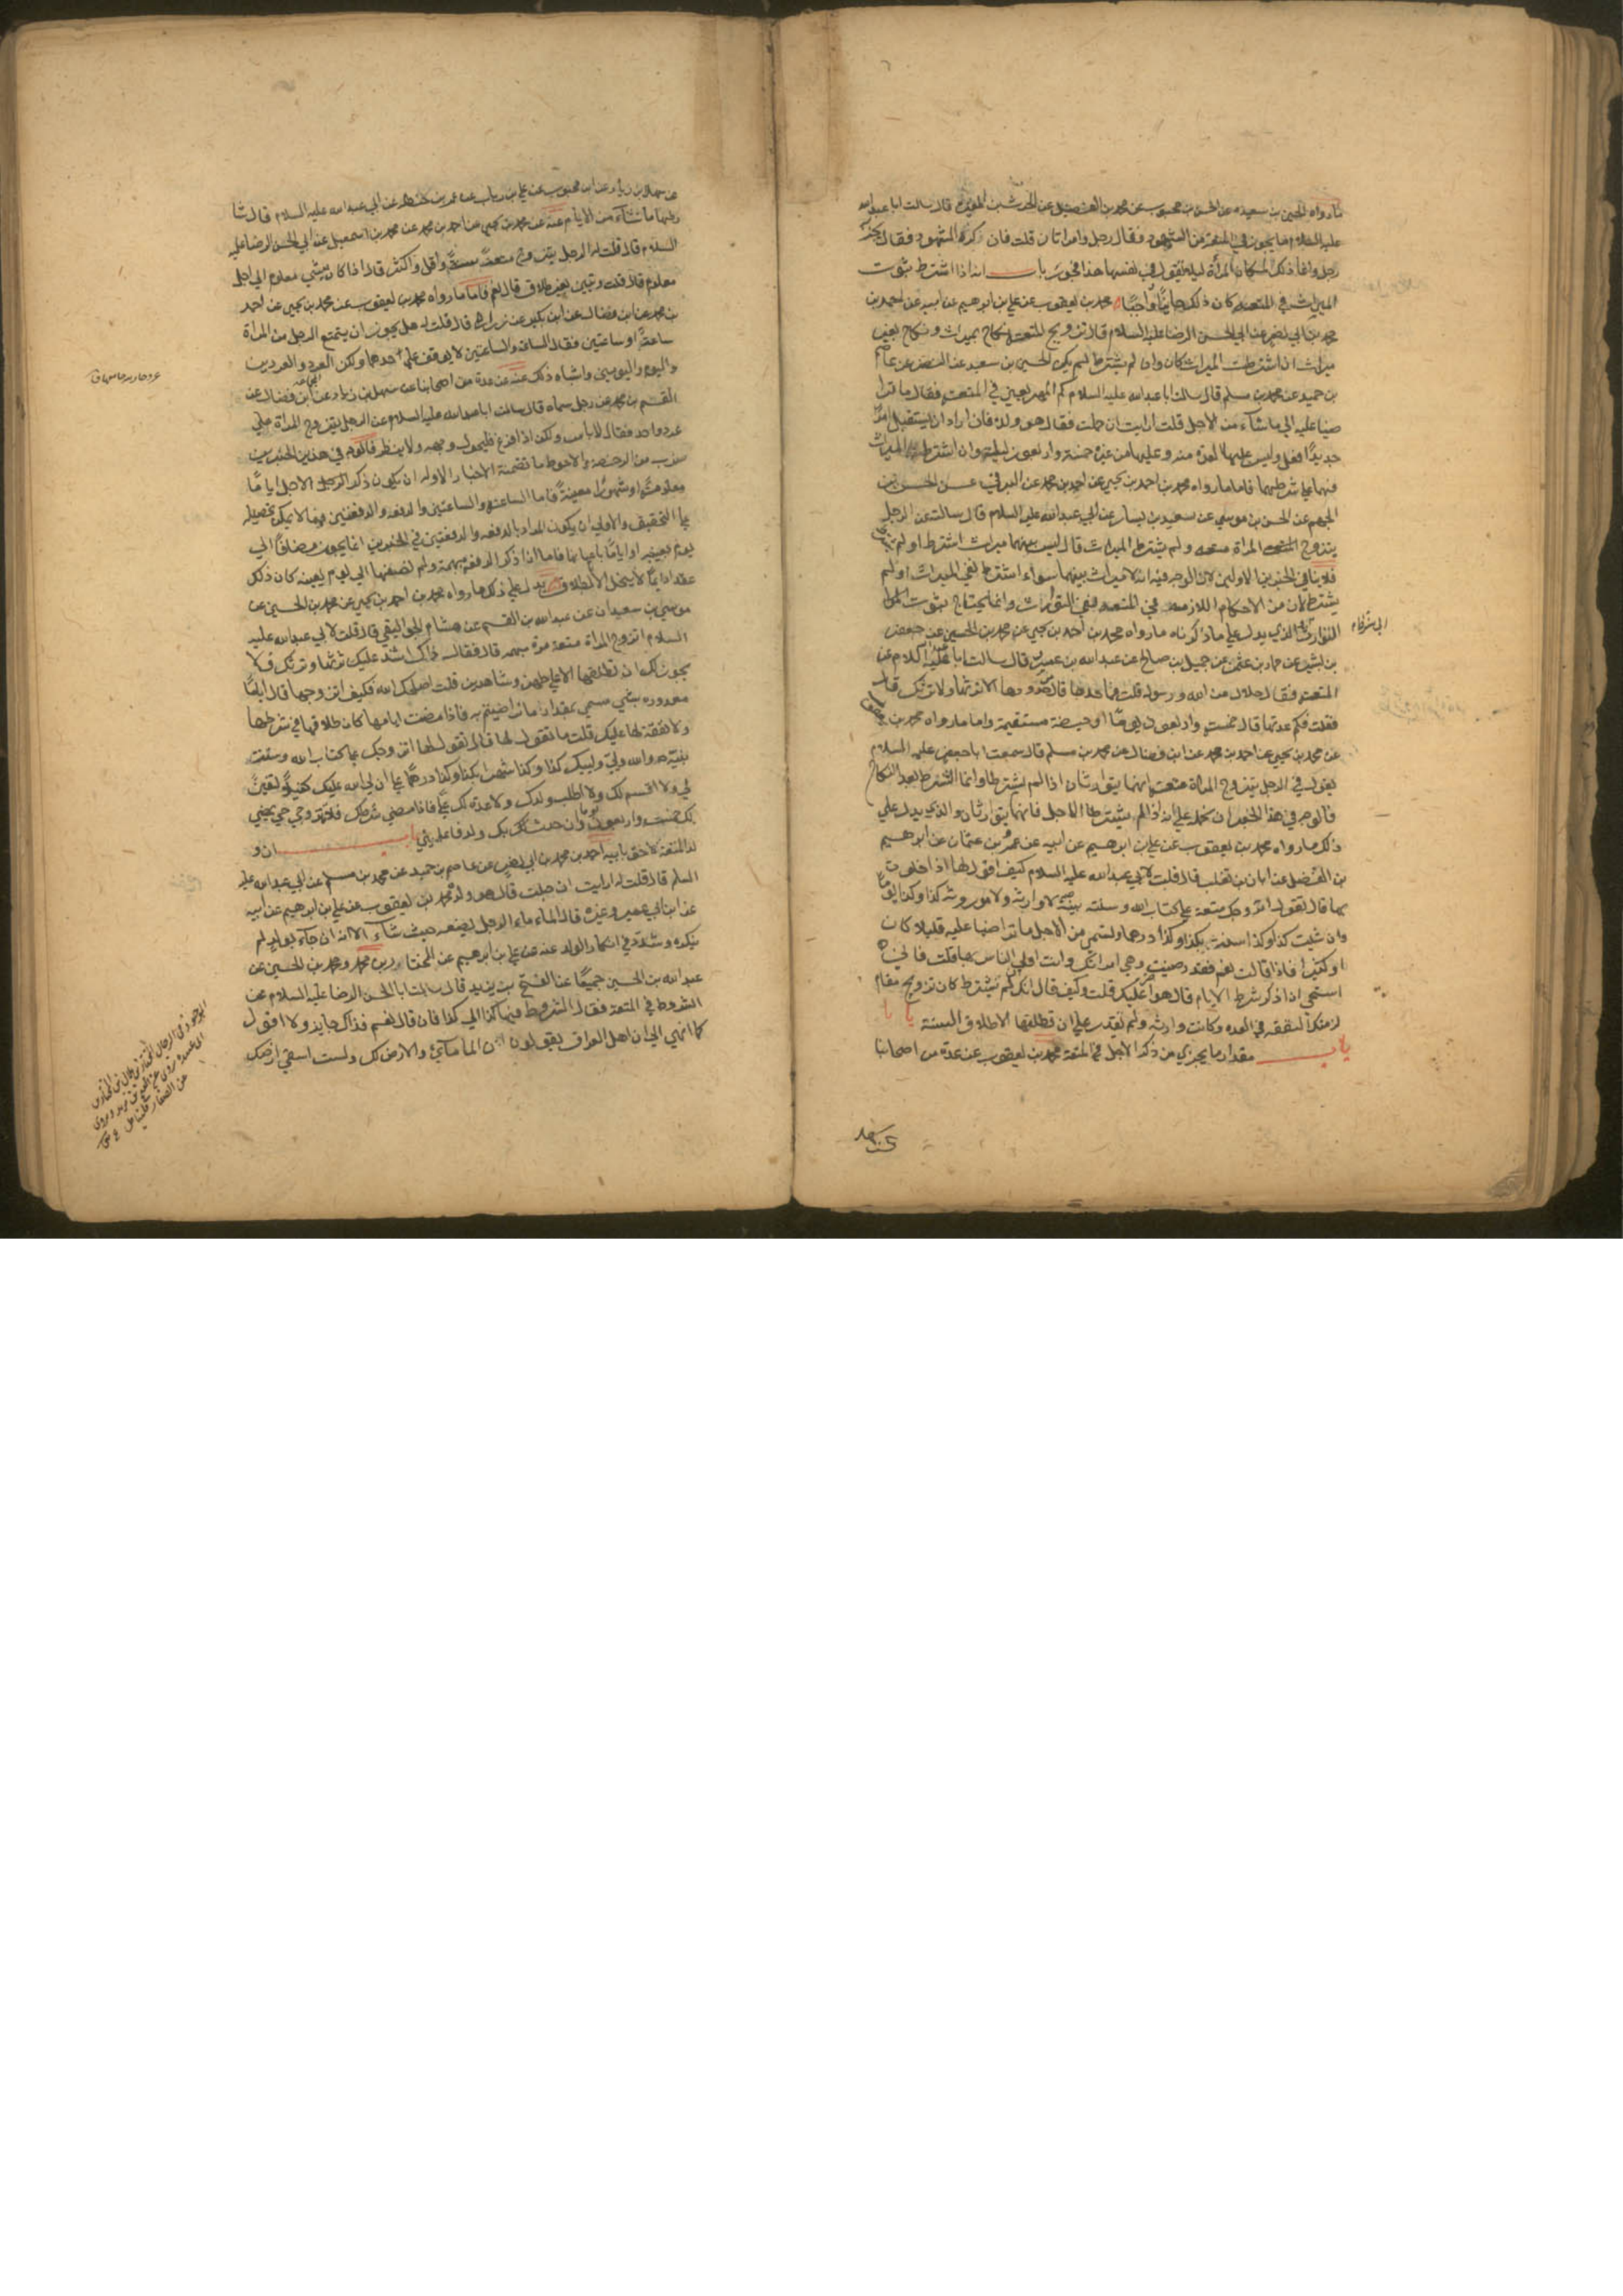 ما رواه الحسين بن سعيد عن الحسن بن محبوب عن محمد بن الفضيل عن الحرث بن المغيرة قال سالت ابا عبد الله
عليه السلام ما يجوز في المتعة من الشهود فقال رجل وامراتان قلت فان كره الشهود فقال يجزيه
رجل وانما ذلك لمكان المرأة ليلا تقول في نفسها هذا فجور باب انه اذا اشترط ثبوت
الميراث في المتعة كان ذلك جايزًا واجبًا محمد بن يعقوب عن علي بن ابرهيم عن ابيه عن احمد بن
محمد بن ابي نصر عن ابي الحسن الرضا عليه السلام قال تزويج المتعة نكاح بميراث ونكاح بغير
ميراث ان اشترطت الميراث كان وان لم يشترط لم يكن الحسين بن سعيد عن النضر عن عاصم
بن حميد عن محمد بن مسلم قال سالت ابا عبد الله عليه السلام كم المهر يعني في المتعة فقال ما ترا
ضيا عليه الي ما شاء من الاجل قلت ارايت ان حملت فقال هو ولده فان اراد ان يستقبل امرًا
جديدًا فعل وليس عليها العدة منه وعليها من غيره خمسة واربعون ليلة وان اشترطت الميراث
فهما علي شرطهما فاما ما رواه محمد بن احمد بن يحيي عن احمد بن محمد عن البرقي عن الحسن بن
الجهم عن الحسن بن موسي عن سعيد بن يسار عن ابي عبد الله عليه السلام قال سالته عن الرجل
يتزوج المراة متعة ولم يشترط الميراث قال ليس بينهما ميراث اشترط او لم يشترط
فلا ينافي الخبرين الاولين لان الوجه فيه انه لا ميراث بينهما سواء اشترط نفي الميراث او لم
يشترط لان من الاحكام اللازمة في المتعة نفي التوارث وانما يحتاج ثبوت
التوارث الي شرط والذي يدل علي ما ذكرناه ما رواه محمد بن احمد بن يحيي عن محمد بن الحسين عن جعفر
بن بشير عن حماد بن عثمن عن جميل بن صالح عن عبد الله بن عمرو قال سالت ابا عبد الله عليه السلام عن
المتعة فقال حلال من الله ورسوله قلت فما حدها قال من حدودها الا ترثها ولا ترثك قال
فقلت فكم عدتها قال خمسة واربعون يومًا او حيضة مستقيمة واما ما رواه محمد بن يعقوب
عن محمد بن يحيي عن احمد بن محمد عن ابن فضال عن محمد بن مسلم قال سمعت ابا جعفر عليه السلام
يقول في الرجل يتزوج المراة متعة انهما يتوارثان اذا لم يشترطا وانما الشرط بعد النكاح
فالوجه في هذا الخبر ان نحمله علي انه اذا لم يشترطا الاجل فانهما يتوارثان والذي يدل علي
ذلك ما رواه محمد بن يعقوب عن علي بن ابرهيم عن ابيه عن عمرو بن عثمان عن ابرهيم
بن الفضل عن ابان بن تغلب قال قلت لابي عبد الله عليه السلام كيف اقول لها اذا خلوت
بها قال تقول اتزوجك متعة علي كتاب الله وسنة نبيه لا وارثة ولا موروثة كذا وكذا يومًا
وان شيت كذا وكذا سنة بكذا وكذا درهما وتسمي من الاجل ما تراضيا عليه قليلا كان
او كثيرا فاذا قالت نعم فقد رضيت وهي امراتك وانت اولي الناس بها قلت فاني
استحي ان اذكر شرط الايام قال هو اضر عليك قلت وكيف قال انك ان لم تشترط كان تزويج مقام
لزمتك النفقة في العدة وكانت وارثة ولم تقدر علي ان تطلقها الا طلاق السنة
باب مقدار ما يجزي من ذكر الاجل في المتعة محمد بن يعقوب عن عدة من اصحابنا
عن سهل بن زياد عن ابن محبوب عن علي بن رياب عن عمر بن حنظلة عن ابي عبد الله عليه السلام قال يشا
رطها ما شاء من الايام عنه عن محمد بن يحيي عن احمد بن محمد عن محمد بن اسمعيل عن ابي الحسن الرضا عليه
السلام قال قلت له الرجل يتزوج متعة سنة واقل واكثر قال اذا كان بشي معلوم الي اجل
معلوم قال قلت وتبين بغير طلاق قال نعم فاما ما رواه محمد بن يعقوب عن محمد بن يحيي عن احمد
بن محمد عن ابن فضال عن ابن بكير عن زرارة قال قلت له هل يجوز ان يتمتع الرجل من المراة
ساعة او ساعتين فقال الساعة والساعتين لا يوقف علي حدهما ولكن العرد والعردين
واليوم واليومين واشباه ذلك عنه عن عدة من اصحابنا عن سهل بن زياد عن ابن فضال عن
القسم بن محمد عن رجل سماه قال سالت ابا عبد الله عليه السلام عن الرجل يتزوج المراة علي
عرد واحد فقال لا باس ولكن اذا فرغ فليحول وجهه ولا ينظر فالوجه في هذين الخبرين
ضرب من الرخصة والاحوط ما تضمنته الاخبار الاوله ان يكون ذكر الرجل الاجل ايامًا
معلومة او شهورًا معينة فاما الساعة والساعتين والدفعة والدفعتين فمما لا يمكن تحصيله
علي التحقيق والاولي ان يكون المراد بالدفعة والدفعتين في الخبرين انما يجوز مضافًا الي
يوم بعينه او ايامًا باعيانها فاما اذا ذكر الدفعة مبهمة ولم يضفها الي يوم بعينه كان ذلك
عقدا دايمًا لا ينحل الا بالطلاق يدل علي ذلك ما رواه محمد بن احمد بن يحيي عن محمد بن الحسين عن
موسي بن سعدان عن عبد الله بن القسم عن هشام الجواليقي قال قلت لابي عبد الله عليه
السلام اتزوج المراة متعة مرة مبهمة قال فقال ذاك اشد عليك ترثها وترثك ولا
يجوز لك ان تطلقها الا علي طهر وشاهدين قلت اصلحك الله فكيف اتزوجها قال ايامًا
معدودة بشي مسمي بمقدار ما تراضيتم به فاذا مضت ايامها كان طلاقها في شرطها
ولا نفقة لها عليك قلت ما تقول لها قال تقول لها اتزوجك علي كتاب الله وسنة
نبيه والله وليي ووليك كذا وكذا شهرا بكذا وكذا درهمًا علي ان لي الله عليك كفيلًا لتفين
لي ولا اقسم لك ولا اطلب ولدك ولا عدة لك علي فاذا مضي شرطك فلا تتزوجي حتي يمضي
لك خمسة واربعون يومًا وان حدث بك ولد فاعلميني باب ان و
لد المتعة لاحق بابيه احمد بن محمد بن ابي نصر عن عاصم بن حميد عن محمد بن مسلم عن ابي عبد الله عليه
السلم قال قلت له ارايت ان حبلت قال هو ولده محمد بن يعقوب عن علي بن ابرهيم عن ابيه
عن ابن ابي عمير وغيره قال الماء ماء الرجل يضعه حيث شاء الا انه ان جاء بولد لم
ينكره وشدد في انكار الولد عنه عن علي بن ابرهيم عن المختار بن محمد ومحمد بن الحسين عن
عبد الله بن الحسين جميعًا عن الفتح بن يزيد قال سالت ابا الحسن الرضا عليه السلام عن
الشروط في المتعة فقال الشروط فيها كذا الي كذا فان قال نعم فذاك جايز ولا اقول
كما انهي الي ان اهل العراق يقولون ان الما مائي والارض لك ولست اسقي ارضك